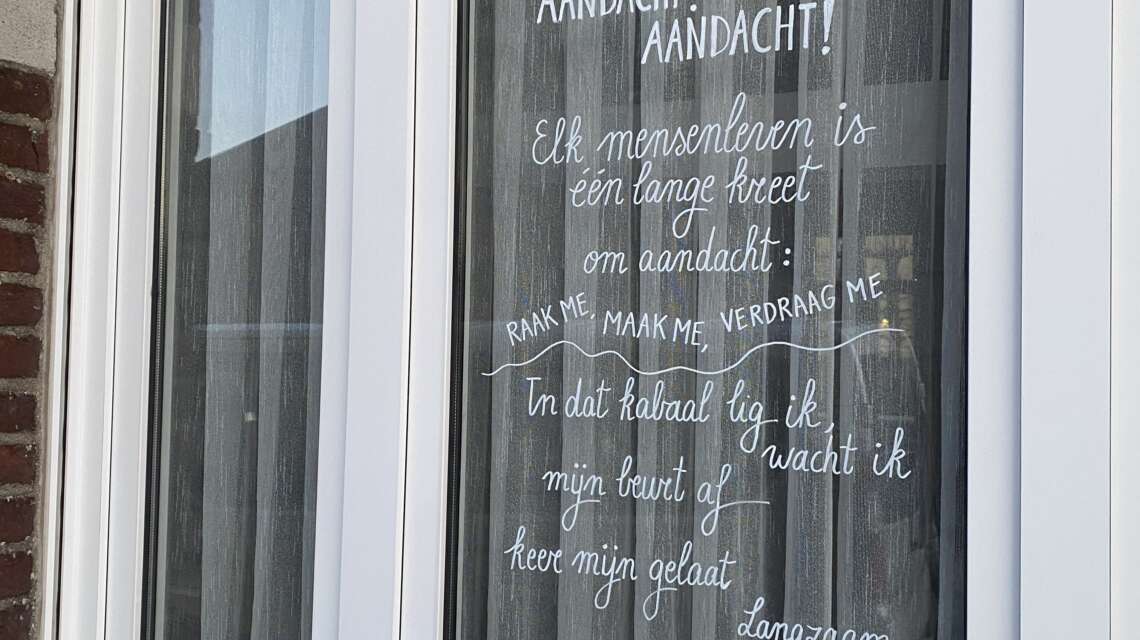 AANDACHT!
AANDACHT!
Elk mensenleven is
één lange kreet
om aandacht:
RAAK ME, MAAK ME, VERDRAAG ME
In dat kabaal lig ik,
wacht ik
mijn beurt af
keer mijn gelaat
Langzaam